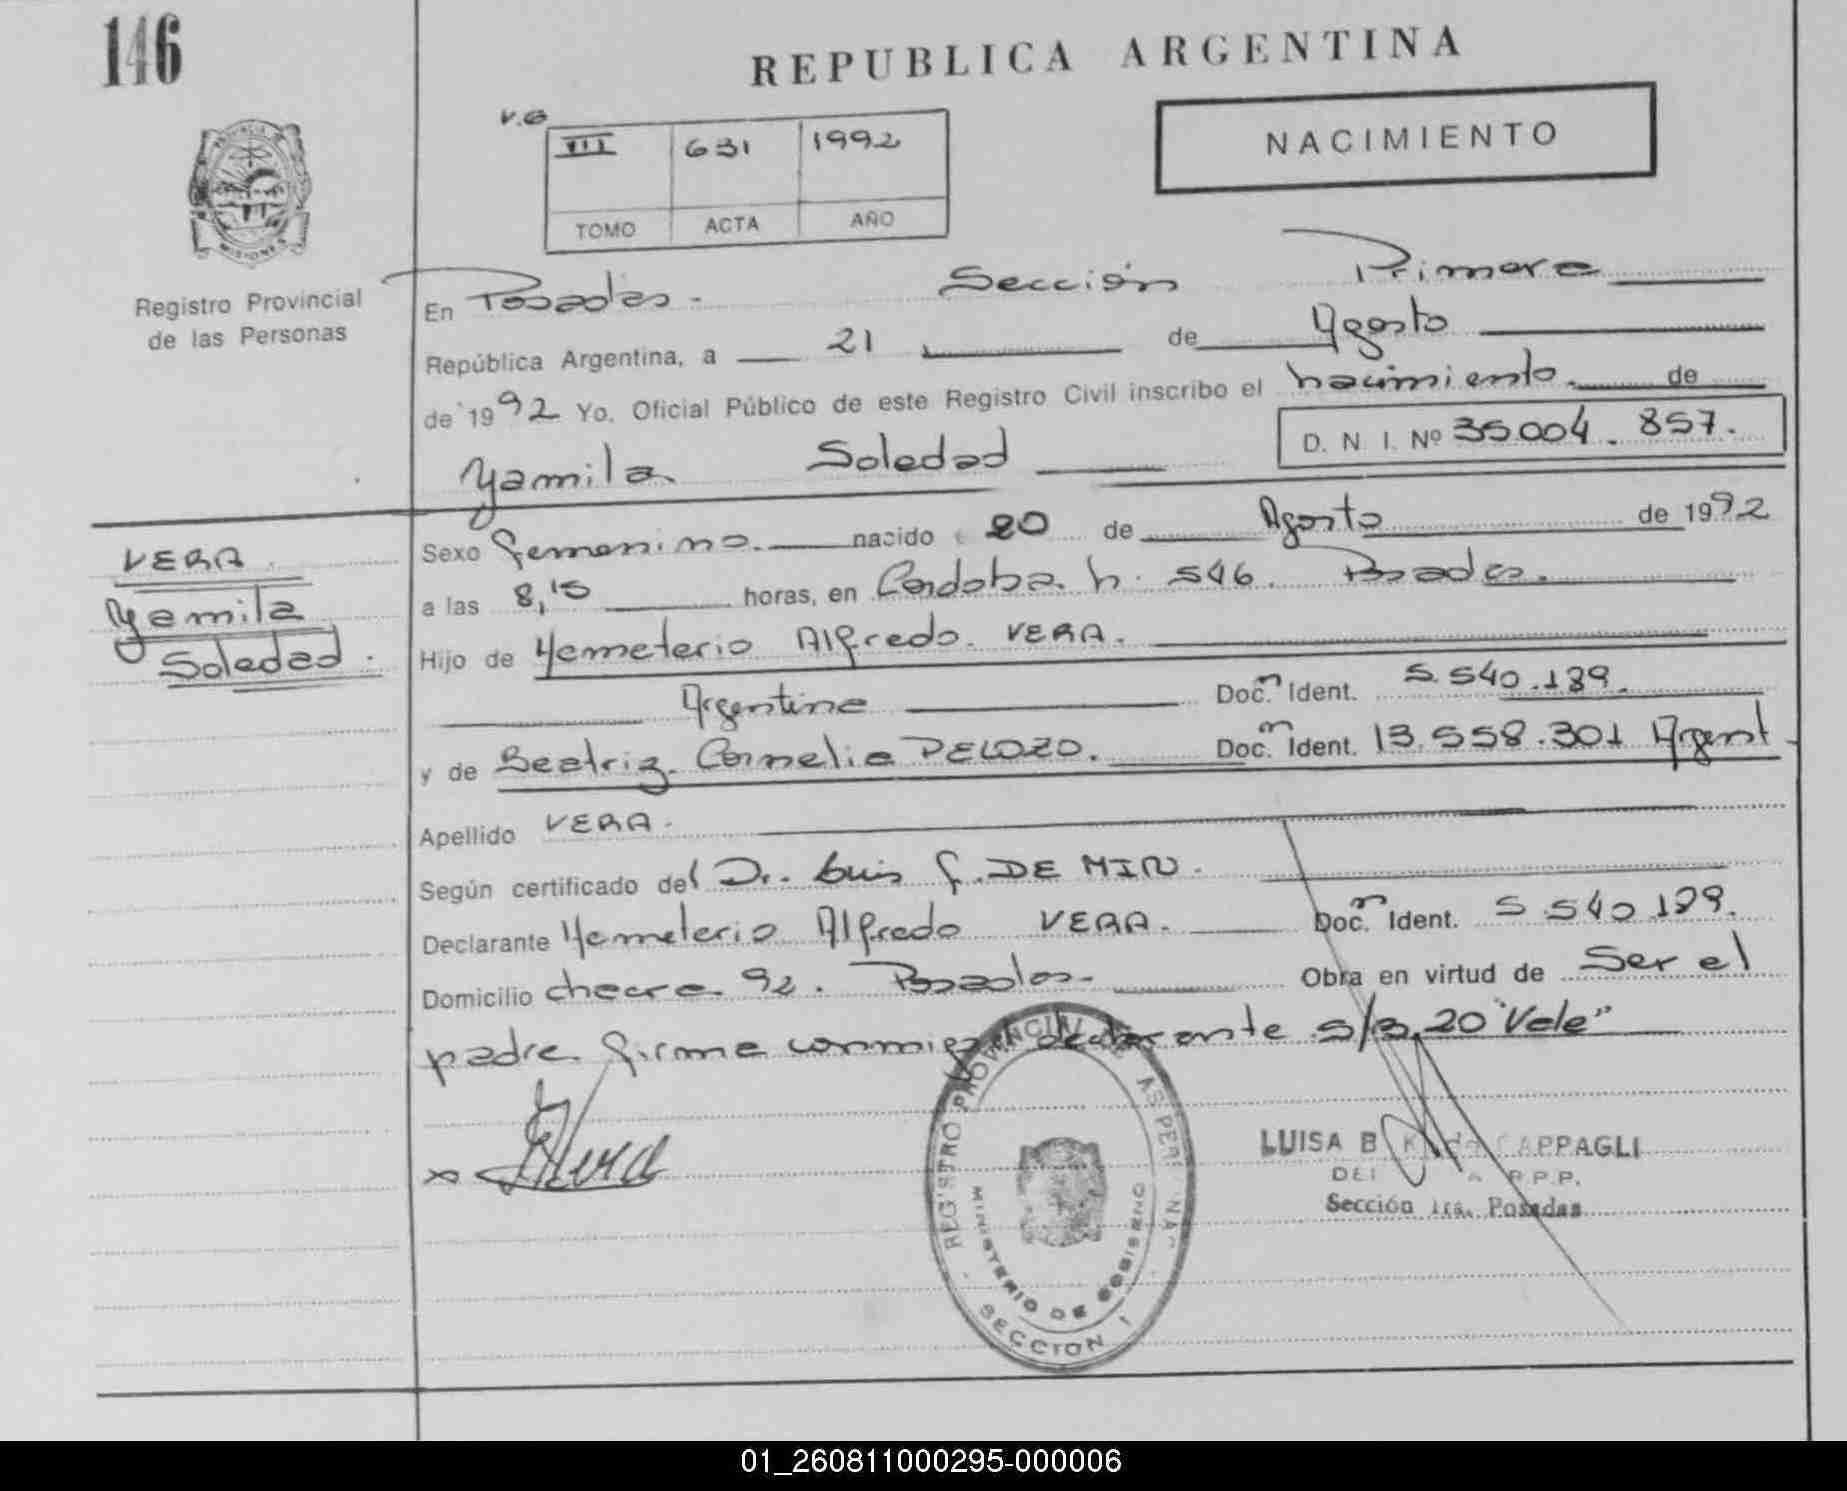 146
REPUBLICA ARGENTINA
NACIMIENTO
V.G
III 631 1992
TOMO ACTA AÑO
PROVINCIA DE MISIONES
Registro Provincial
de las Personas
En Posadas. Sección Primera
República Argentina, a 21 de Agosto
de 1992 Yo, Oficial Público de este Registro Civil inscribo el nacimiento. de
D. N. I. Nº 35.004.857.
Yamila Soledad
VERA
Yamila
Soledad.
Sexo femenino. nacido 20 de Agosto de 1992
a las 8,15 horas, en Córdoba. n. 546. Posadas.
Hijo de Hemeterio Alfredo. VERA.
Argentino Docm. Ident. 5.540.189.
y de Beatriz. Cornelia PELOZO. Docm. Ident. 13.558.301 Argent.
Apellido VERA.
Según certificado del Dr. Luis f. DE MIN.
Declarante Hemeterio Alfredo VERA. Docm. Ident. 5.540.189.
Domicilio chacra 92. Posadas. Obra en virtud de Ser el
padre. firma conmigo el declarante s/B. 20 "Vale"
x Vera
REGISTRO PROVINCIAL DE LAS PERSONAS
MINISTERIO DE GOBIERNO
SECCION 1
LUISA B K de CAPPAGLI
R.P.P.
Sección 1ra. Posadas
01_260811000295-000006